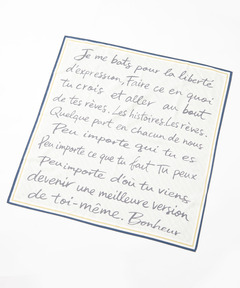 Je me bats pour la liberté
d'expression, Faire ce en quoi
tu crois et aller au bout
de tes rêves. Les histoires. Les rêves.
Quelque part en chacun de nous
Peu importe qui tu es
Peu importe ce que tu faut Tu peux
Peu importe d'où tu viens
devenir une meilleure version
de toi-même. Bonheur